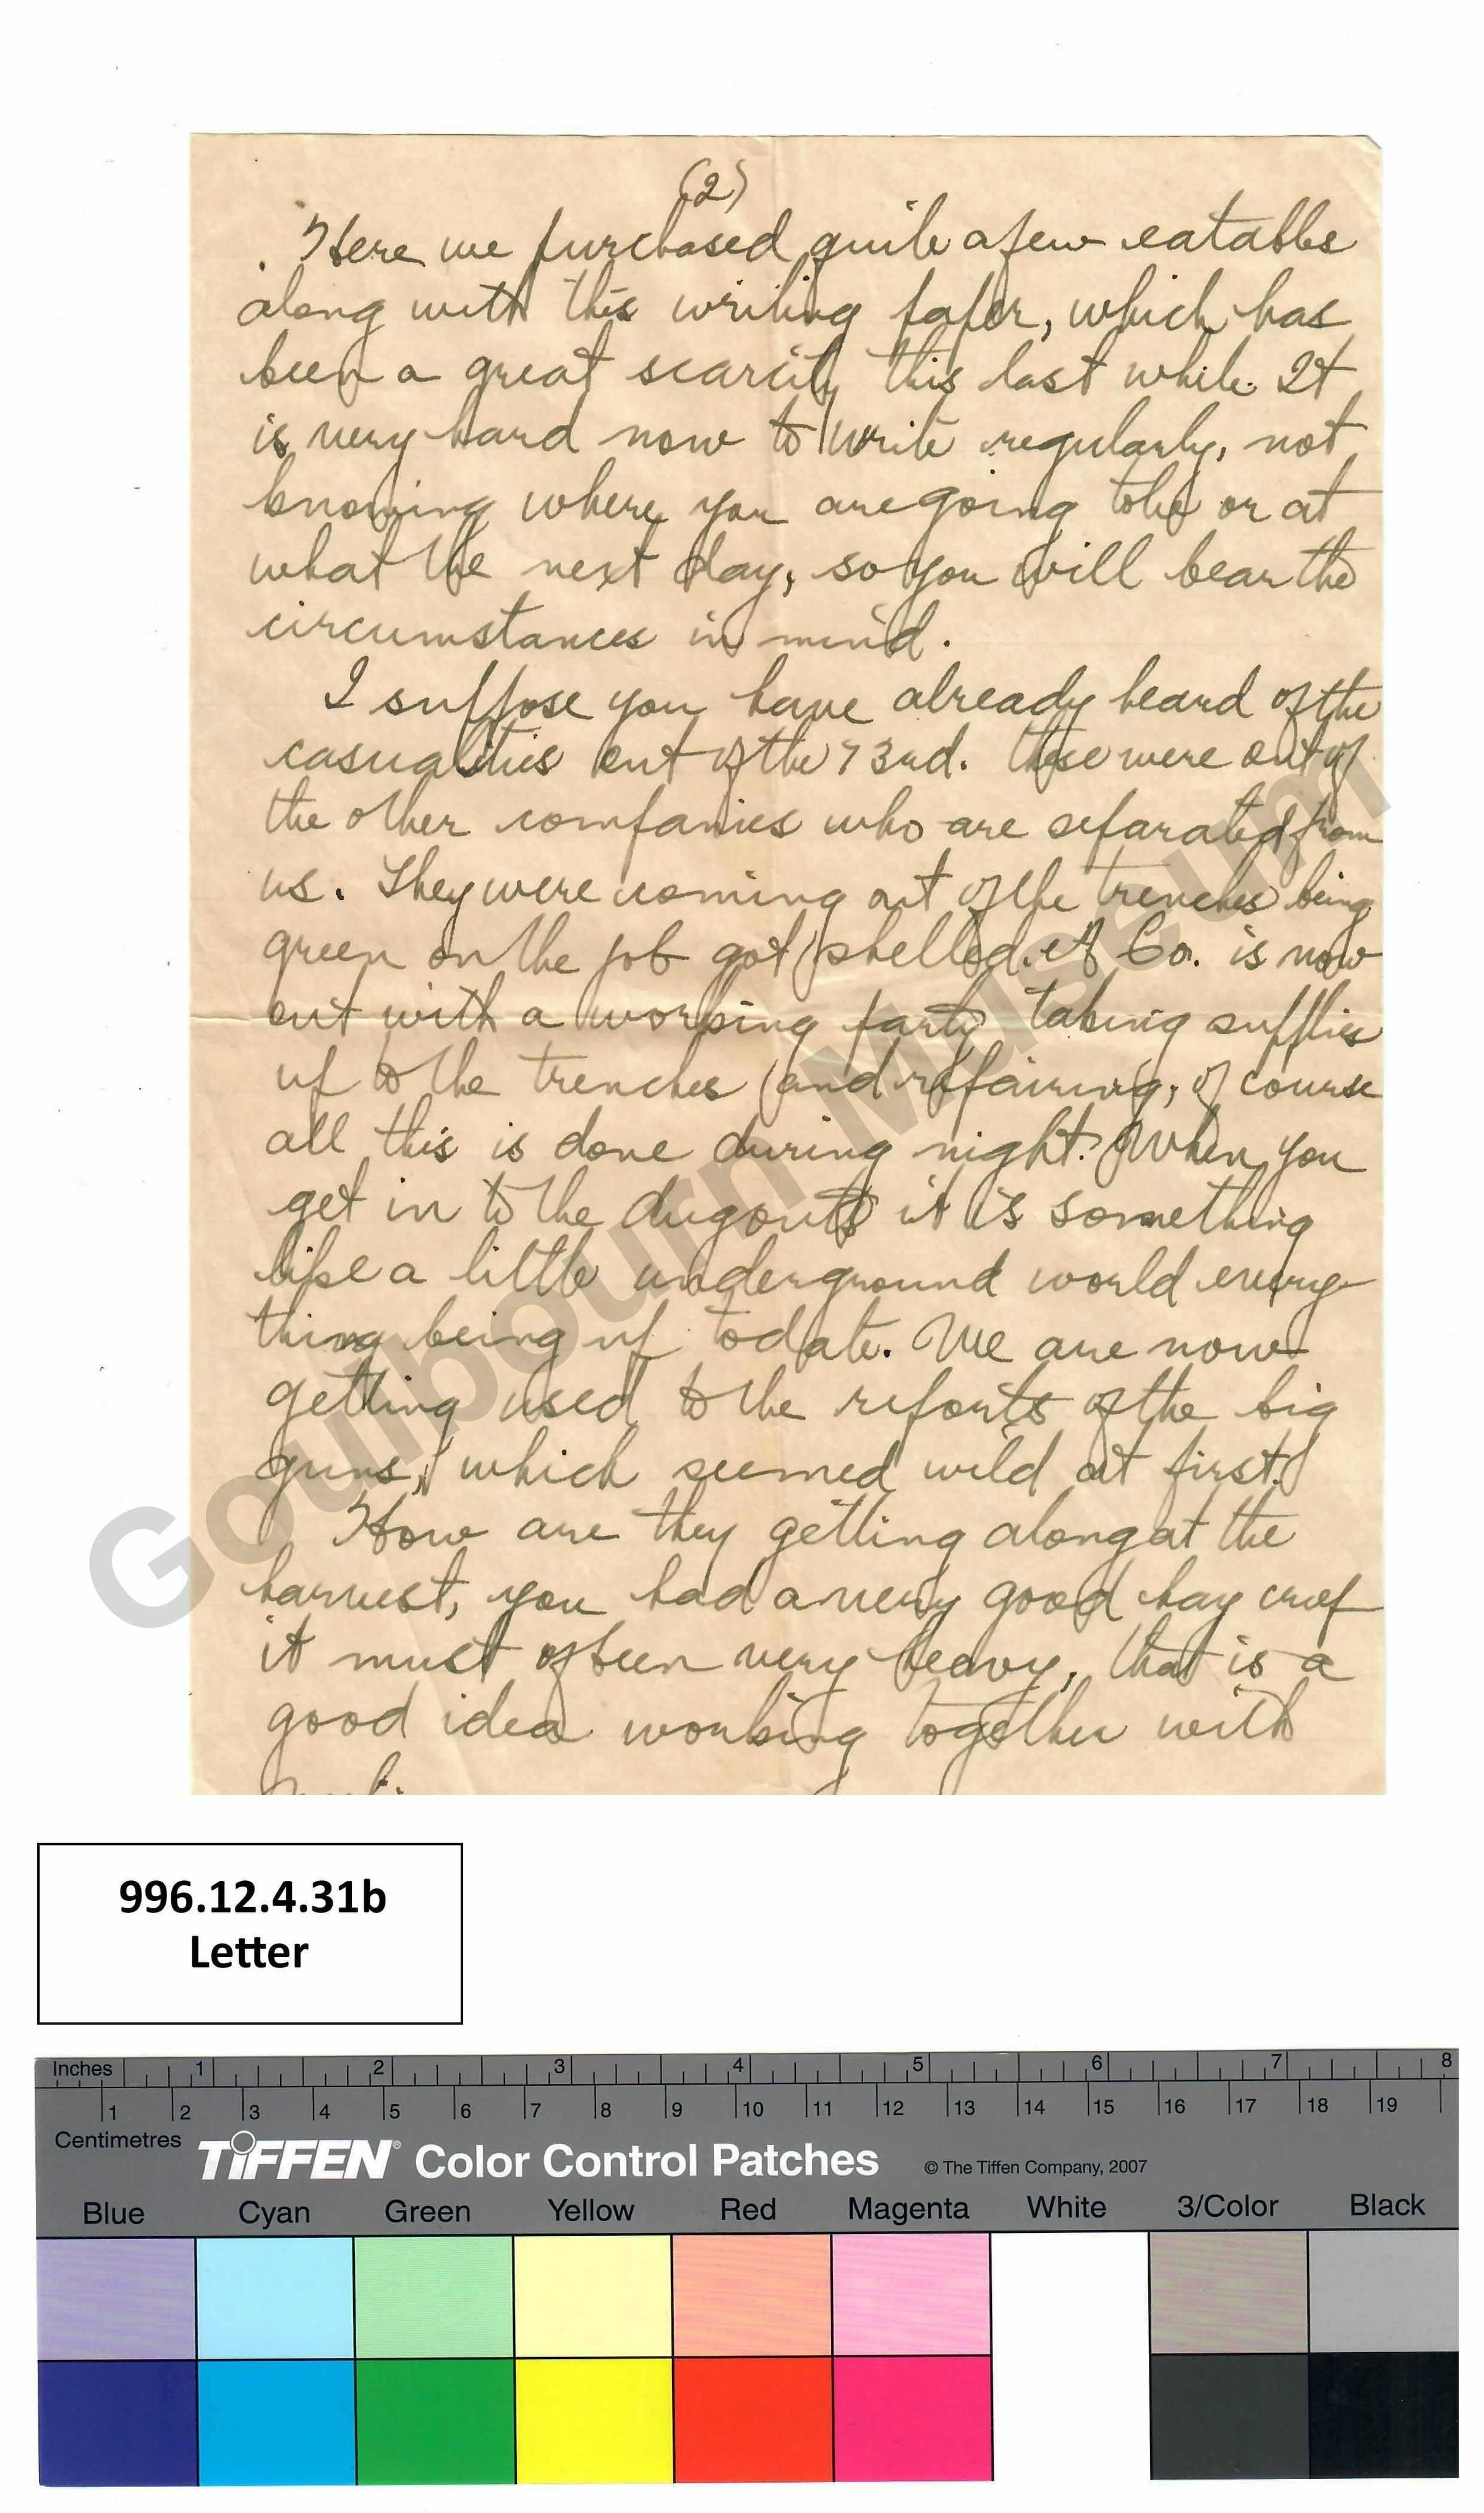 (2)
Here we purchased quite a few eatables
along with this writing paper, which has
been a great scarcity this last while. It
is very hard now to write regularly, not
knowing where you are going to be or at
what the next day, so you will bear the
circumstances in mind.
I suppose you have already heard of the
casualities out of the 73rd. these were out of
the other companies who are separated from
us. They were coming out of the trenches being
green on the job got shelled. A Co. is now
out with a working party taking supplies
up to the trenches and repairing, of course
all this is done during night. When you
get in to the dugouts it is something
like a little underground world every-
thing being up to date. We are now
getting used to the reports of the big
guns, which seemed wild at first.
How are they getting along at the
harvest, you had a very good hay crop
it must of been very heavy, that is a
good idea working together with
Goulbourn Museum
996.12.4.31b
Letter
Inches 1 2 3 4 5 6 7 8
1 2 3 4 5 6 7 8 9 10 11 12 13 14 15 16 17 18 19
Centimetres
TIFFEN® Color Control Patches © The Tiffen Company, 2007
Blue Cyan Green Yellow Red Magenta White 3/Color Black